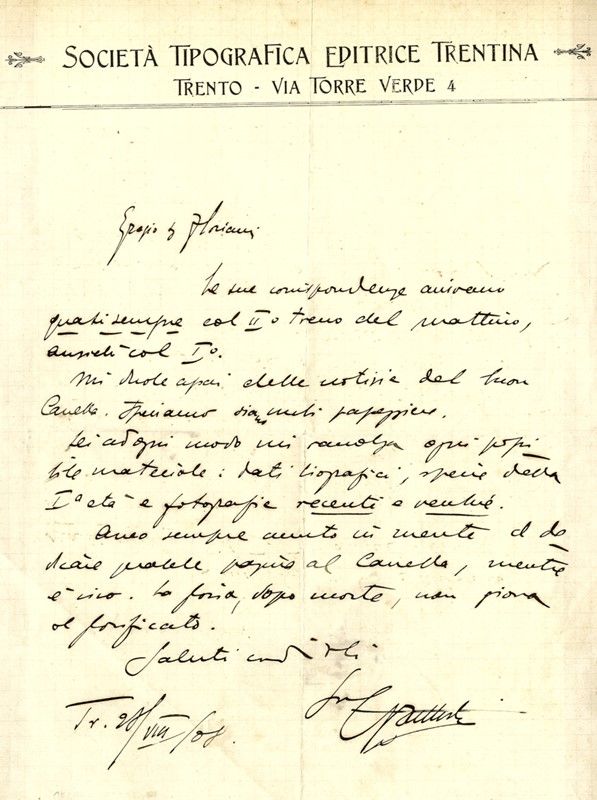 SOCIETÀ TIPOGRAFICA EDITRICE TRENTINA
TRENTO - VIA TORRE VERDE 4
Egregio Sg Floriani
Le sue corrispondenze arrivano
quasi sempre col II° treno del mattino,
anziché col I°.
Mi duole assai delle notizie del buon
Canella. Speriamo siano
Lei ad ogni modo mi raccolga ogni possi
bile materiale: dati biografici, specie della
I^a età e fotografie recenti e vecchie.
Avevo sempre avuto in mente di de
dicare qualche pagina al Canella, mentre
è vivo. La gloria, dopo morte, non giova
al glorificato.
Saluti cordiali
Suo C Battisti
Tr. 28/VIII/08.